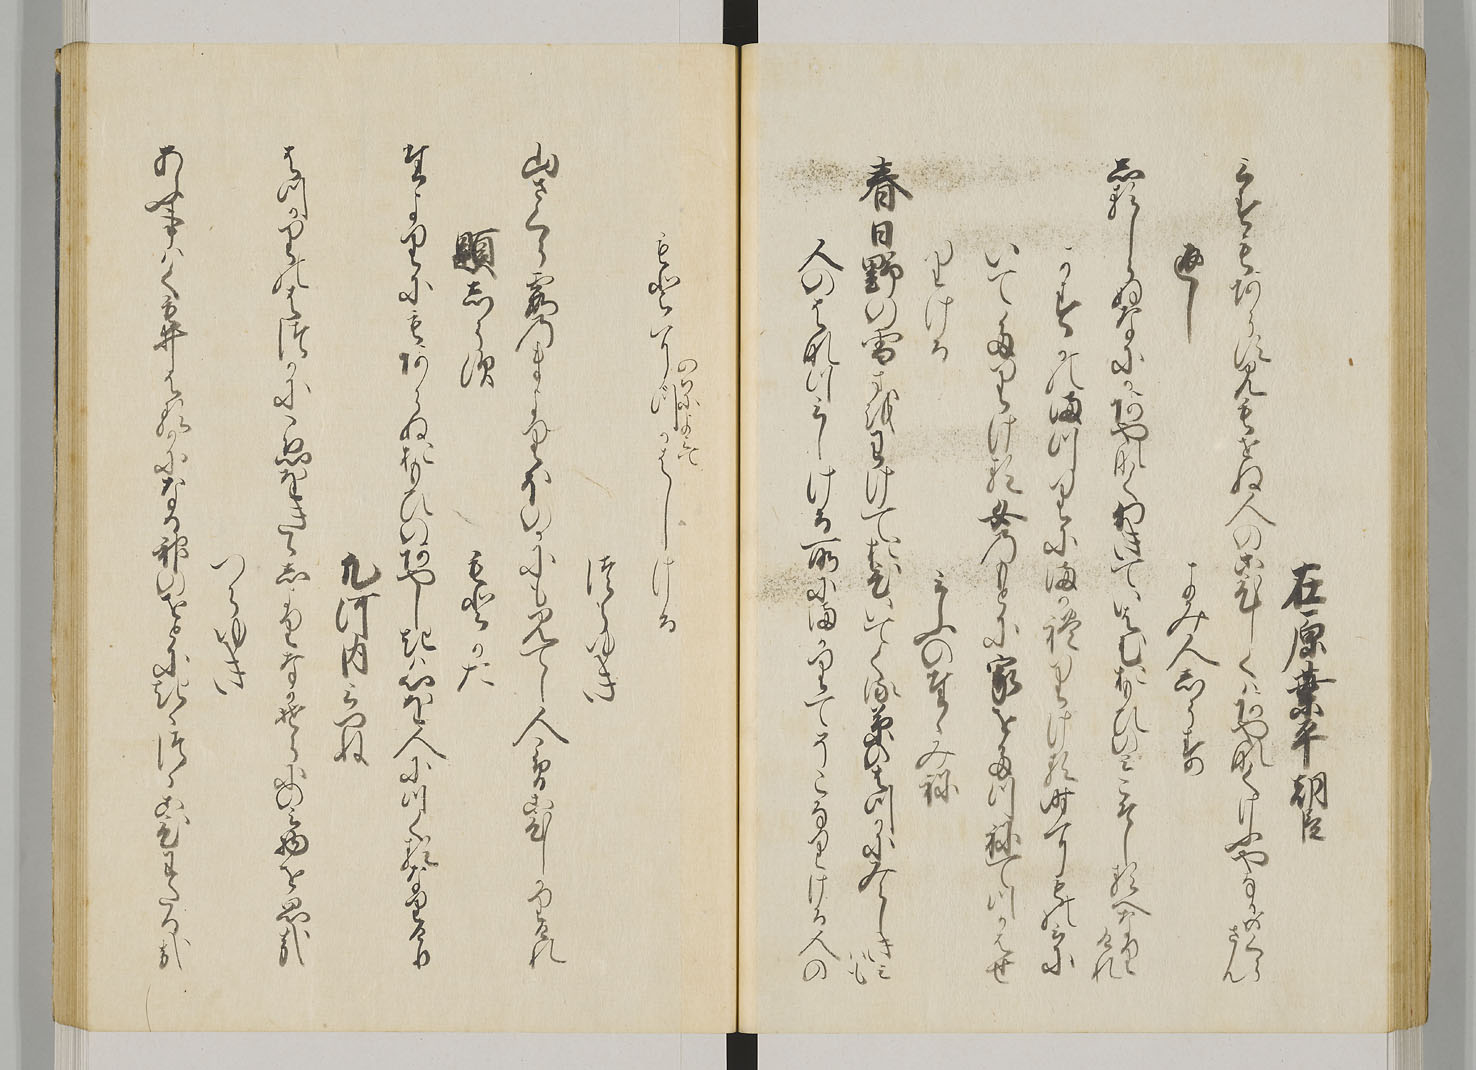 在原業平朝臣
みすもあらす見もせぬ人のこひしくはあやなくけふやなかめくらさん
返し
よみ人しらす
しるしらぬなにかあやなくわきていはむおもひのみこそしるへなりけれ
かすかのまつりにまかれりける時にものみに
いてたりける女のもとに家をたつねてつかはせ
りける
みふのたゝみね
春日野の雪まをわけておひいてくる草のはつかにみえしきみはも
人のはなつみしける所にまかりてそこなりける人の
もとにのちによみてつかはしける
つらゆき
山さくら霞のまよりほのかにも見てし人こそこひしかりけれ
題しらす
もとかた
たよりにもあらぬおもひのあやしきは心を人につくるなりけり
凡河内みつね
はつかりのはつかにこゑをきゝしよりなかそらにのみ物を思哉
つらゆき
あふ事はくもゐはるかになる神のをとにきゝつゝこひわたる哉